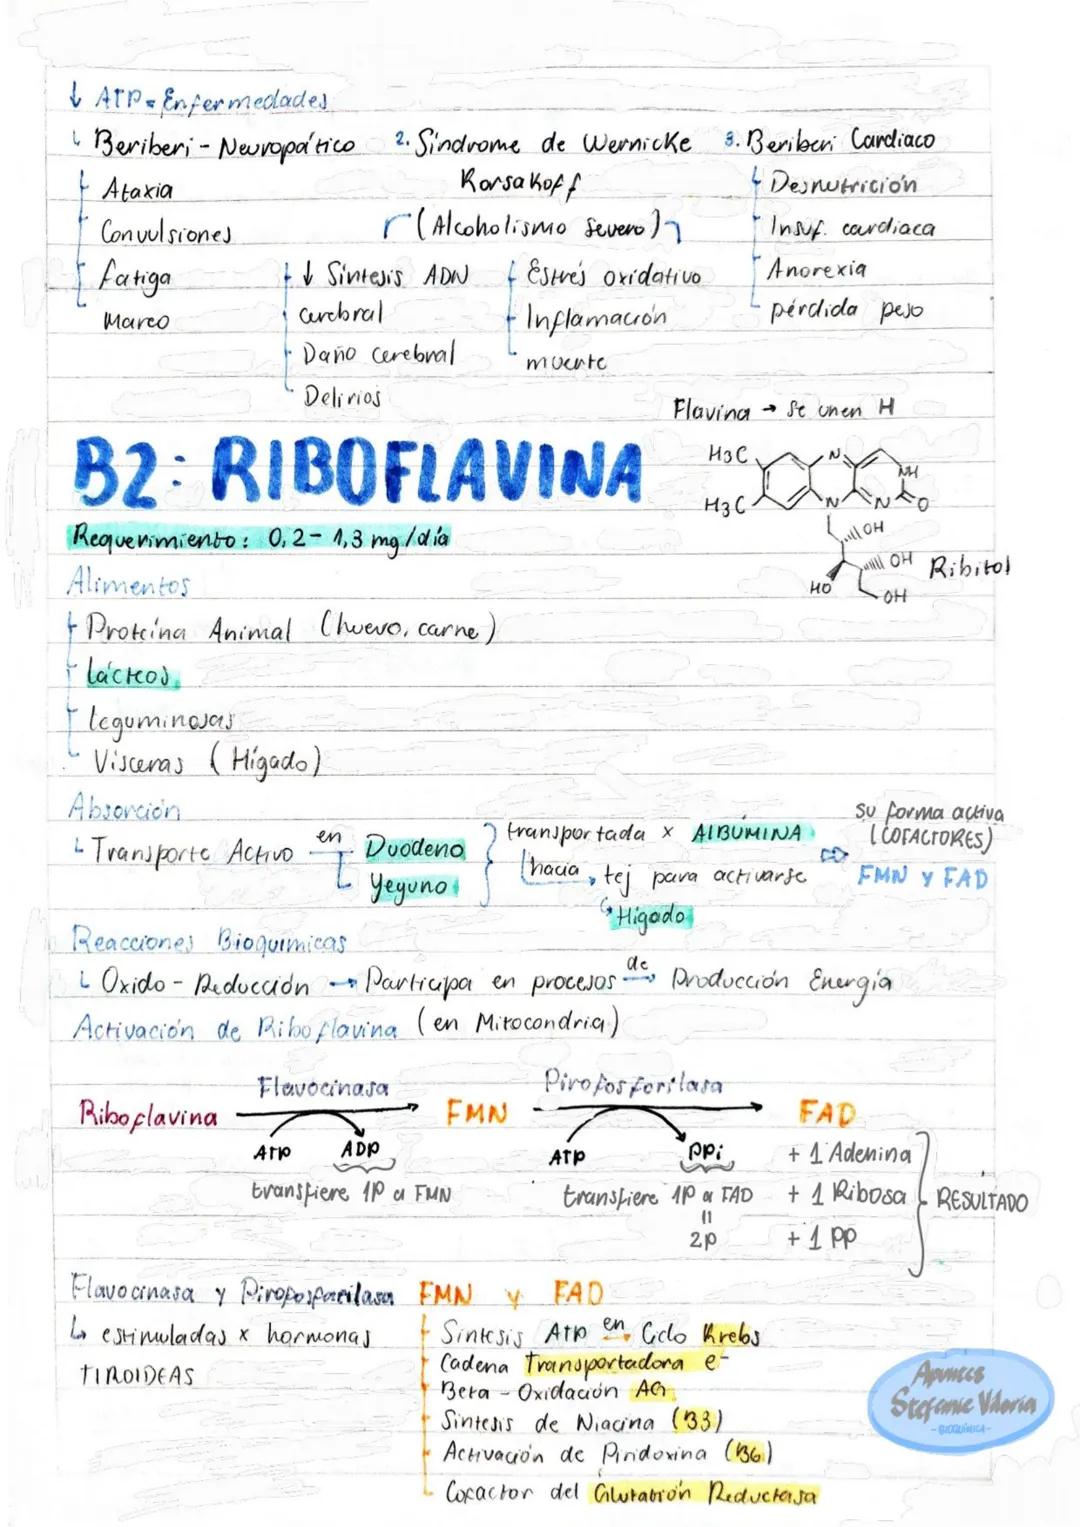 ↓ ATP = Enfermedades
Beriberi - Neuropático
Ataxia
Convulsiones
fatiga
Mareo
2. Síndrome de Wernicke
Korsakoff
(Alcoholismo Severo)
↓ Síntesis ADN
cerebral
Daño cerebral
Delirios
Estrés oxidativo
Inflamación
muerte
3. Beriberi Cardiaco
Desnutrición
Insuf. cardiaca
Anorexia
pérdida peso
B2: RIBOFLAVINA
Flavina → Se unen H
H3C
H3C
N
N
NH
N
O
OH
OH
HO
OH
Ribitol
Requerimiento: 0,2 - 1,3 mg/día
Alimentos
Proteína Animal (huevo, carne)
Lácteos
leguminosas
Visceras (Hígado)
Absorción
Transporte Activo en Duodeno
Yeyuno
transportada x AlBÚMINA
hacia tej para activarse
Hígado
⇒
su forma activa
(COFACTORES)
FMN y FAD
Reacciones Bioquímicas
Oxido - Reducción → Participa en procesos de → Producción Energía
Activación de Riboflavina (en Mitocondria)
Riboflavina
Flavocinasa
ATP
ADP
transfiere 1P a FMN
FMN
Pirofosforilasa
ATP
PPi
transfiere 1P a FAD
"
2P
FAD
+ 1 Adenina
+ 1 Ribosa
+ 1 PP
RESULTADO
Flavocinasa y Pirofosforilasa
↳ estimuladas x hormonas
TIROIDEAS
FMN y FAD
Síntesis ATP en → Ciclo Krebs
Cadena Transportadora e-
Beta - Oxidación AG
Síntesis de Niacina (B3)
Activación de Piridoxina (B6)
Cofactor del Glutatión Reductasa
Apuntes
Stefanie Viloria
- BIOQUÍMICA -